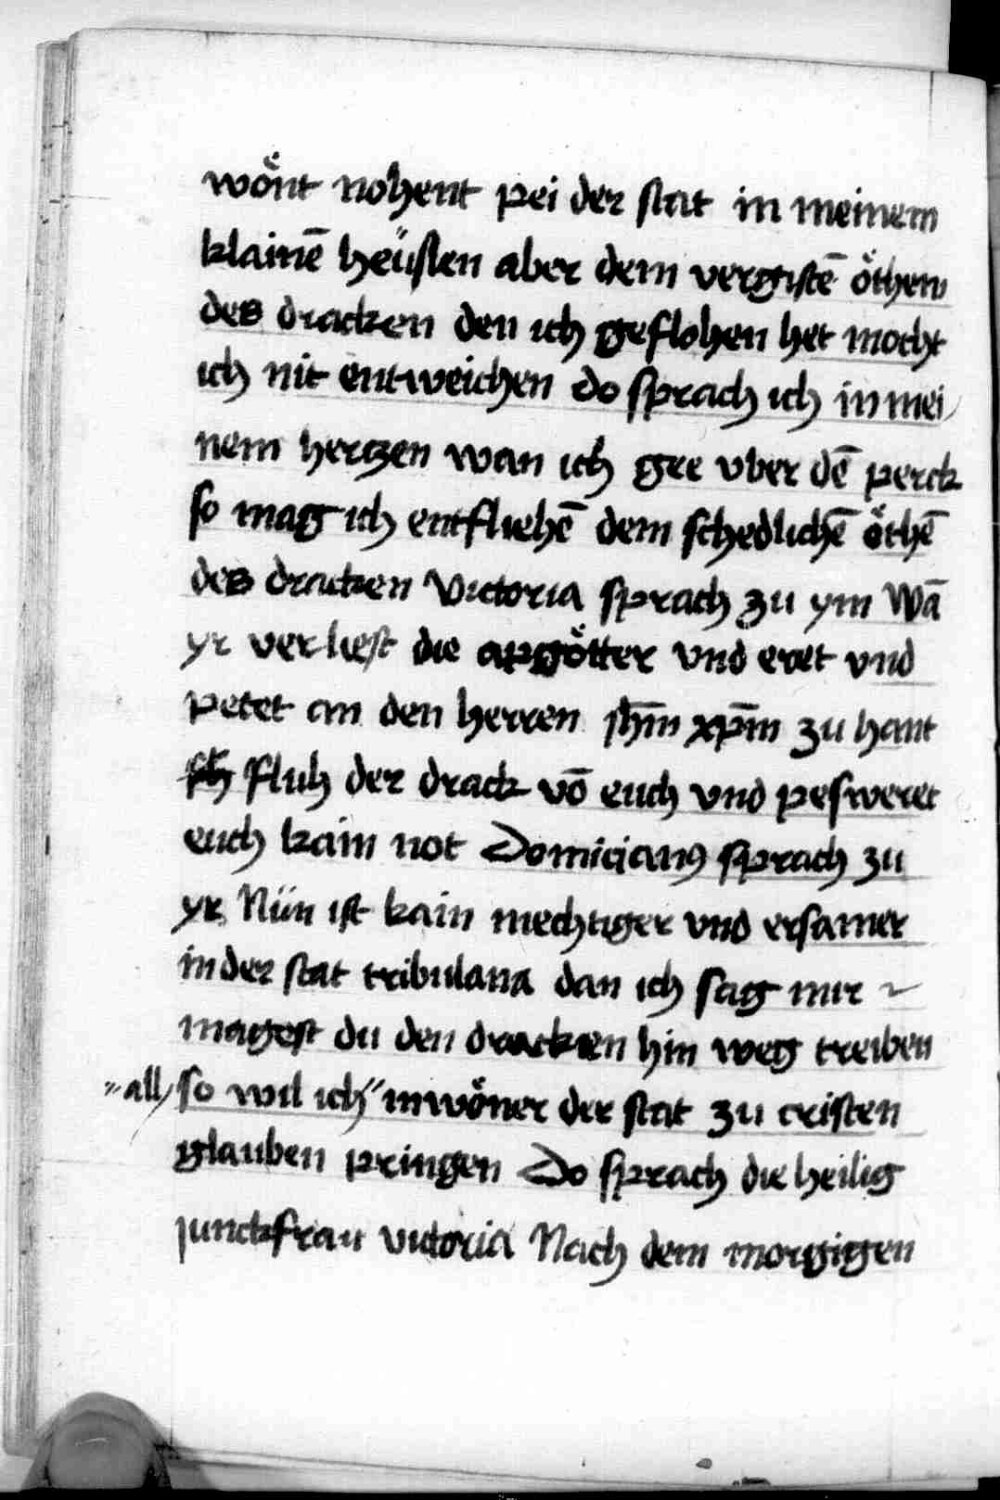 wo᷏nt nohent pei der stat in meinem
klainē heüslen aber dem vergiftē öthem
des dracken den ich geflohen het mocht
ich nit entweichen do sprach ich in mei
nem hertzen wan ich gee vber dē perck
so mag ich entfliehē dem schedlichē öthē
des dracken Victoria sprach zu ym Wā
yr verliest die apgötter vnd eret vnd
petet an den herren jhm̄ xpm̄ zu hant
fluh der drack vō euch vnd peswert
euch kain not Domicianꝰ sprach zu
yr Nün ist kain mechtiger vnd ersamer
in der stat tribulana dan ich sag mir
magest du den dracken hin weg treiben
"all so wil ich " inwöner der stat zu cristen
glauben pringen Do sprach die heilig
junckfrau victoria Nach dem morgigen